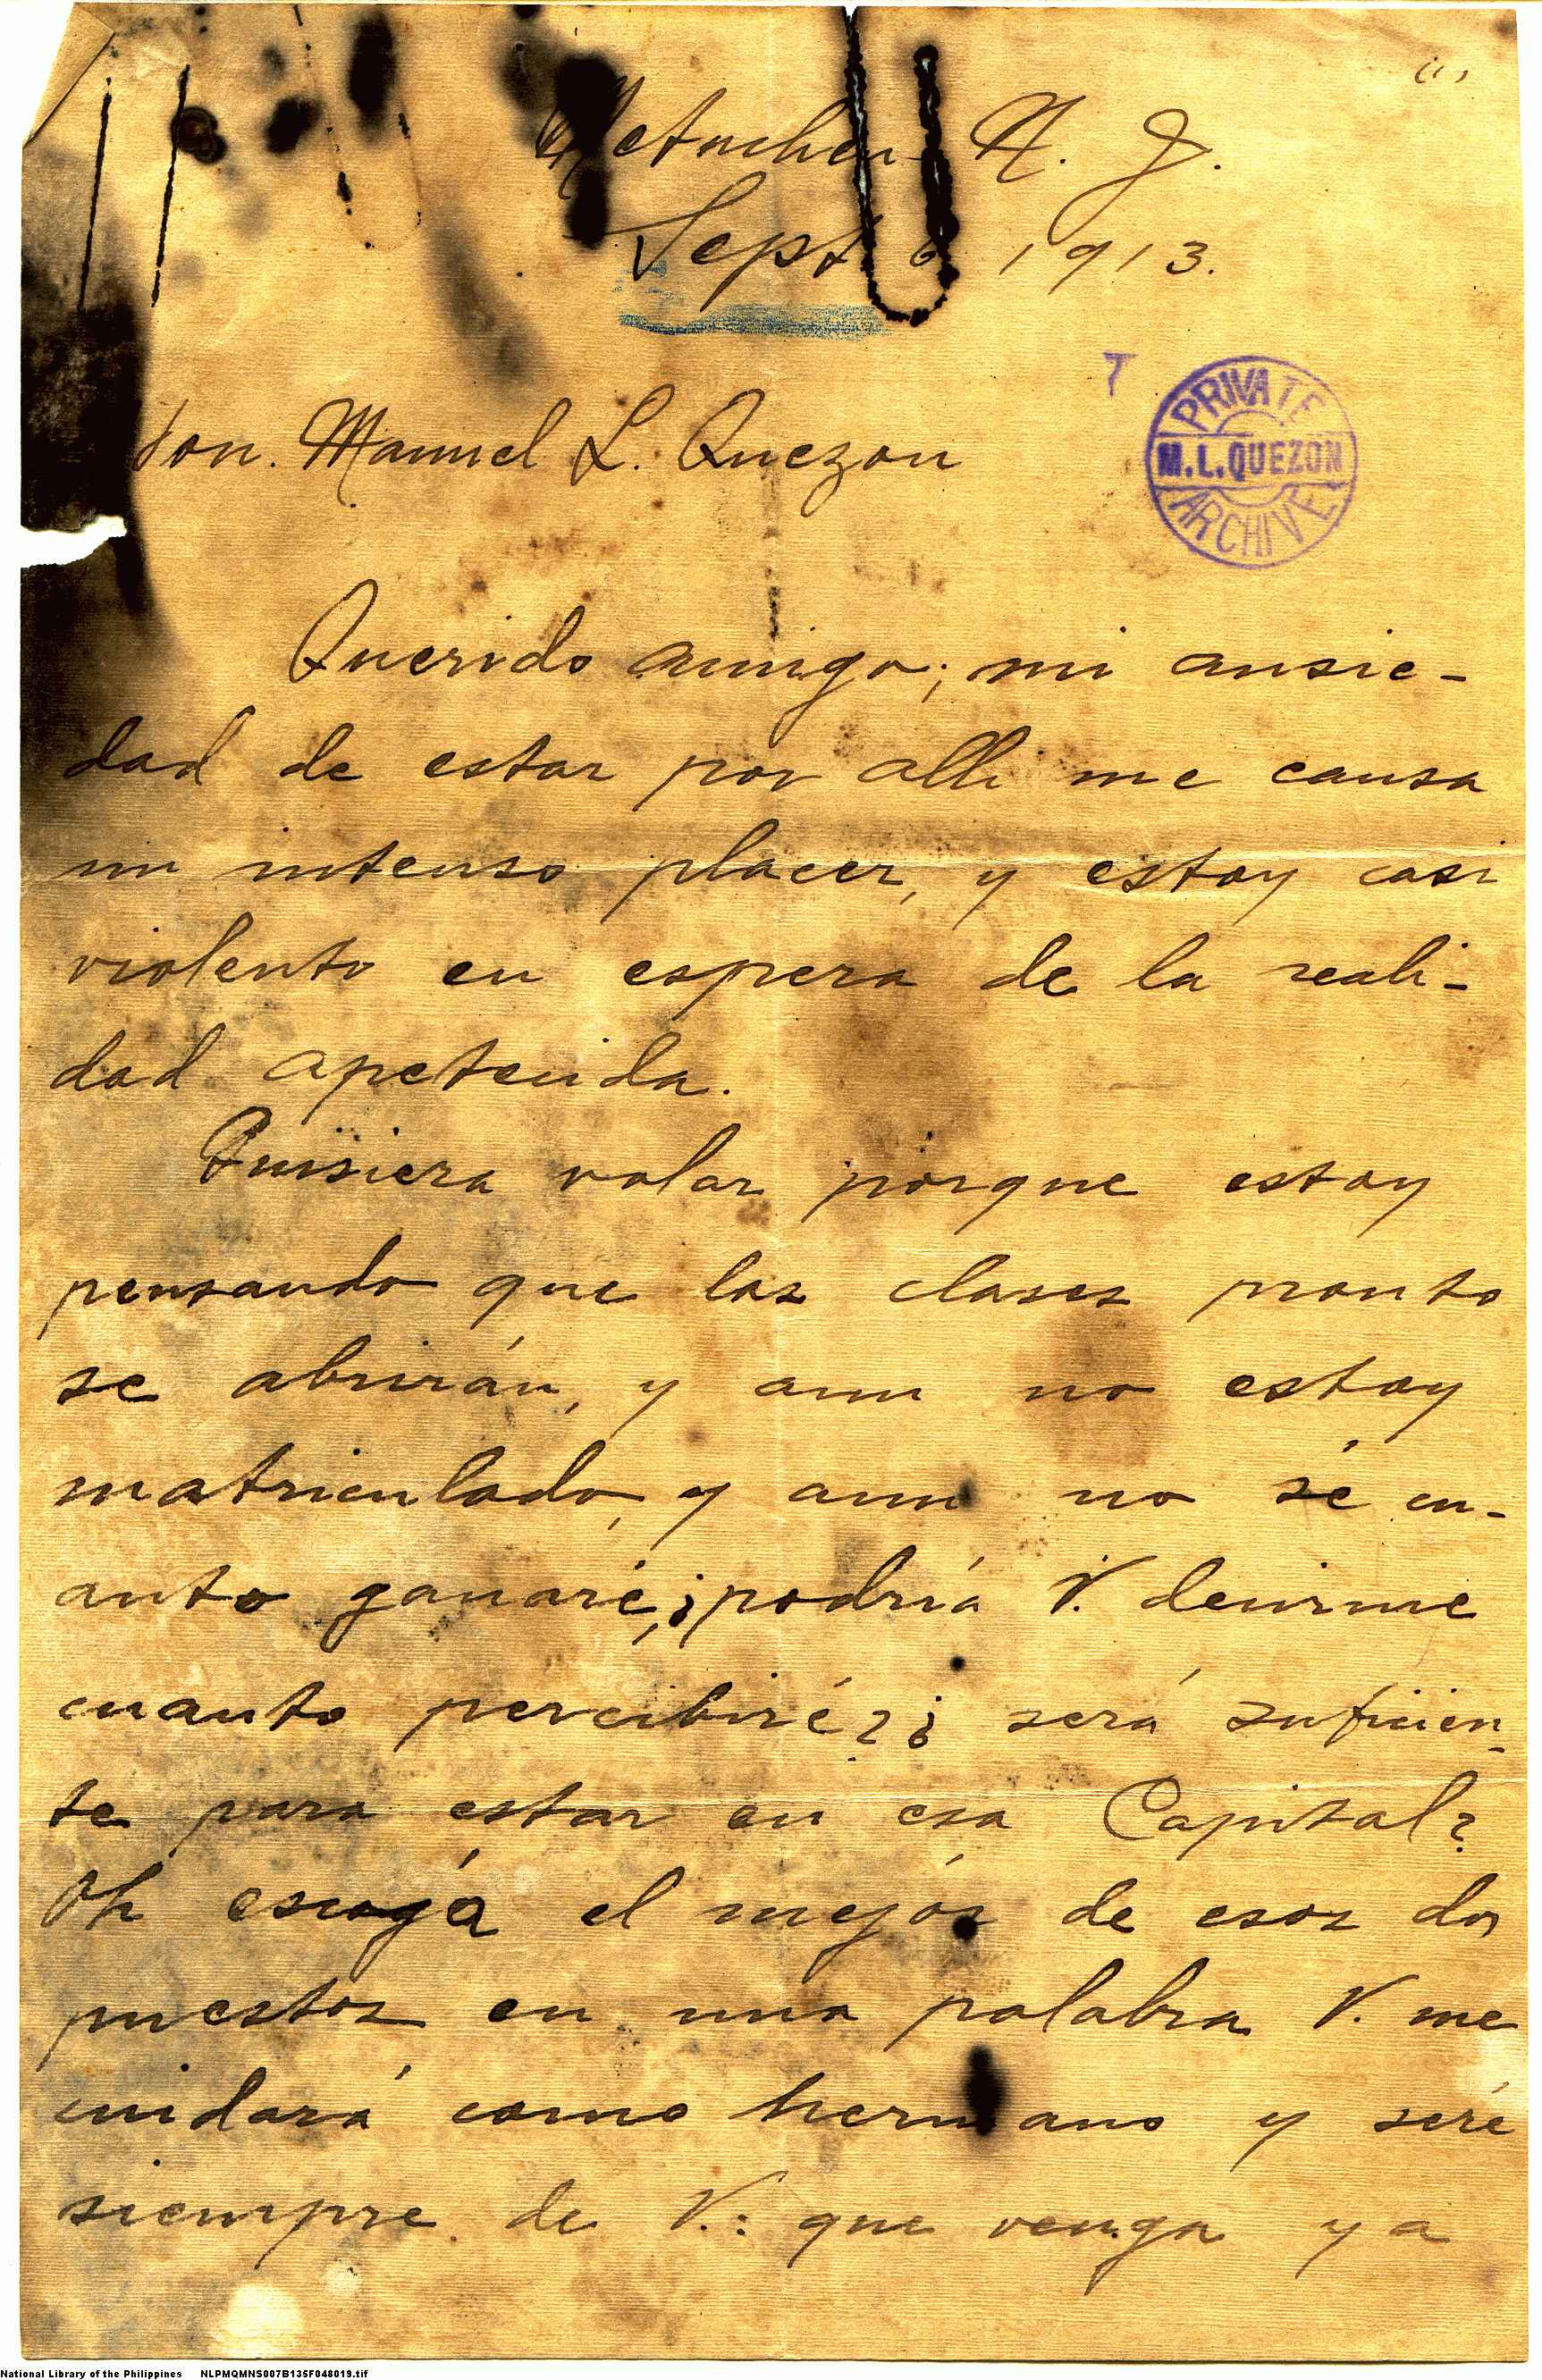 Metuchen N. J.
Sept 6 1913.
7
PRIVATE
M.L.QUEZON
ARCHIVE
Hon. Manuel L. Quezon
Querido amigo; mi ansie-
dad de estar por alli me causa
un intenso placer, y estoy casi
violento en espera de la reali-
dad apetecida.
Quisiera volar porque estoy
pensando que las clases pronto
se abrirán, y aun no estoy
matriculado, y aun no sé cu-
anto ganaré; ¿podría V. decirme
cuanto percibiré? ¿será suficien-
te para estar en esa Capital?
Oh escogá el mejór de esos dos
puestos en una palabra V. me
cuidará como hermano y seré
siempre de V.: que venga ya
National Library of the Philippines NLPMQMNS007B135F048019.tif